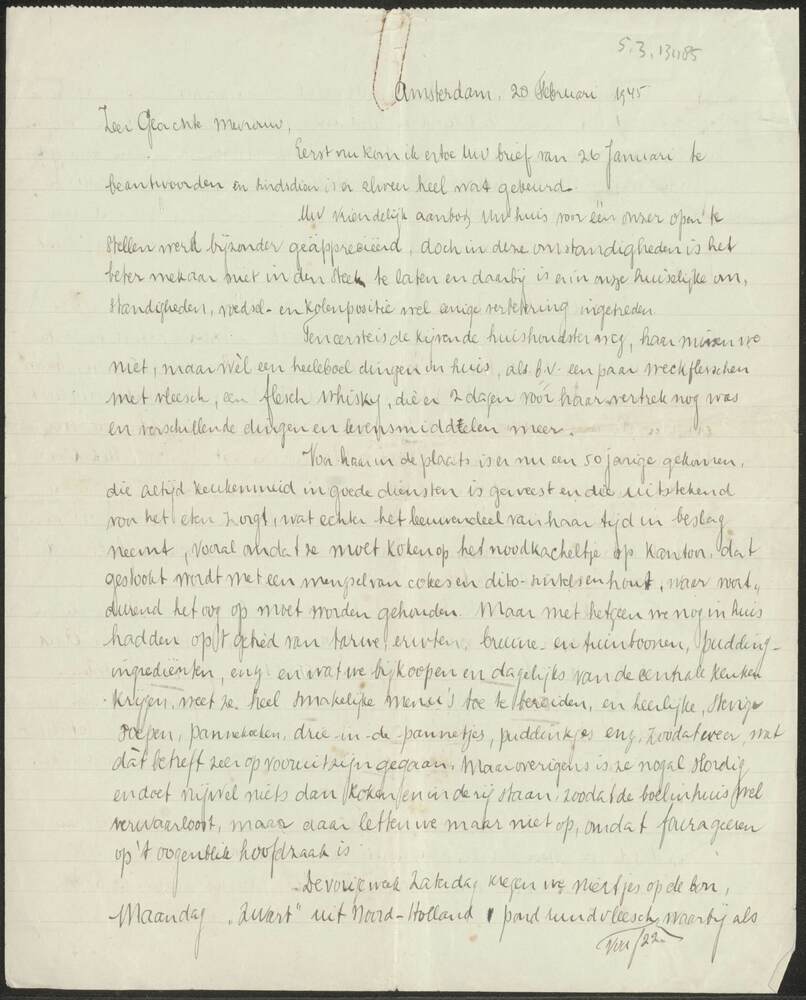 5.3.13485
Amsterdam, 20 Februari 1945
Zeer Geachte Mevrouw,
Eerst nu kom ik ertoe Uw brief van 26 Januari te
beantwoorden en sindsdien is er alweer heel wat gebeurd.
Uw vriendelijk aanbod Uw huis voor één onzer open te
stellen werd bijzonder geäpprecieerd, doch in deze omstandigheden is het
beter mekaar niet in den steek te laten en daarbij is er in onze huiselijke om,
standigheden, voedsel- en kolenpositie wel eenige verbetering ingetreden
Ten eerste is de kijvende huishoudster weg, haar missen we
niet, maar wèl een heeleboel dingen in huis, als b.v. een paar weckflesschen
met vleesch, een flesch whisky, die er 2 dagen vóór haar vertrek nog was
en verschillende dingen en levensmiddelen meer.
Voor haar in de plaats is er nu een 50 jarige gekomen,
die altijd keukenmeid in goede diensten is geweest en die uitstekend
voor het eten zorgt, wat echter het leeuwendeel van haar tijd in beslag
neemt, vooral omdat ze moet koken op het noodkacheltje op kantoor, dat
gestookt wordt met een mengsel van cokes en dito-sintels en hout, waar voort„
durend het oog op moet worden gehouden. Maar met hetgeen we nog in huis
hadden op 't gebied van tarwe, erwten, bruine- en tuinboonen, pudding-
ingrediënten, enz. en wat we bijkoopen en dagelijks van de centrale keuken
krijgen, weet ze heel smakelijke menu's toe te bereiden, en heerlijke, stevige
soepen, pannekoeken, drie-in-de-pannetjes, puddinkjes enz., zoodat we er, wat
dàt betreft zeer op vooruit zijn gegaan. Maar overigens is ze nogal slordig
en doet vrijwel niets dan koken en in de rij staan, zoodat de boel in huis wel
verwaarloost, maar daar letten we maar niet op, omdat fourageeren
op 't oogenblik hoofdzaak is.
De vorige week Zaterdag kregen we niertjes op de bon,
Maandag „zwart" uit Noord-Holland 1 pond rundvleesch, waarbij als